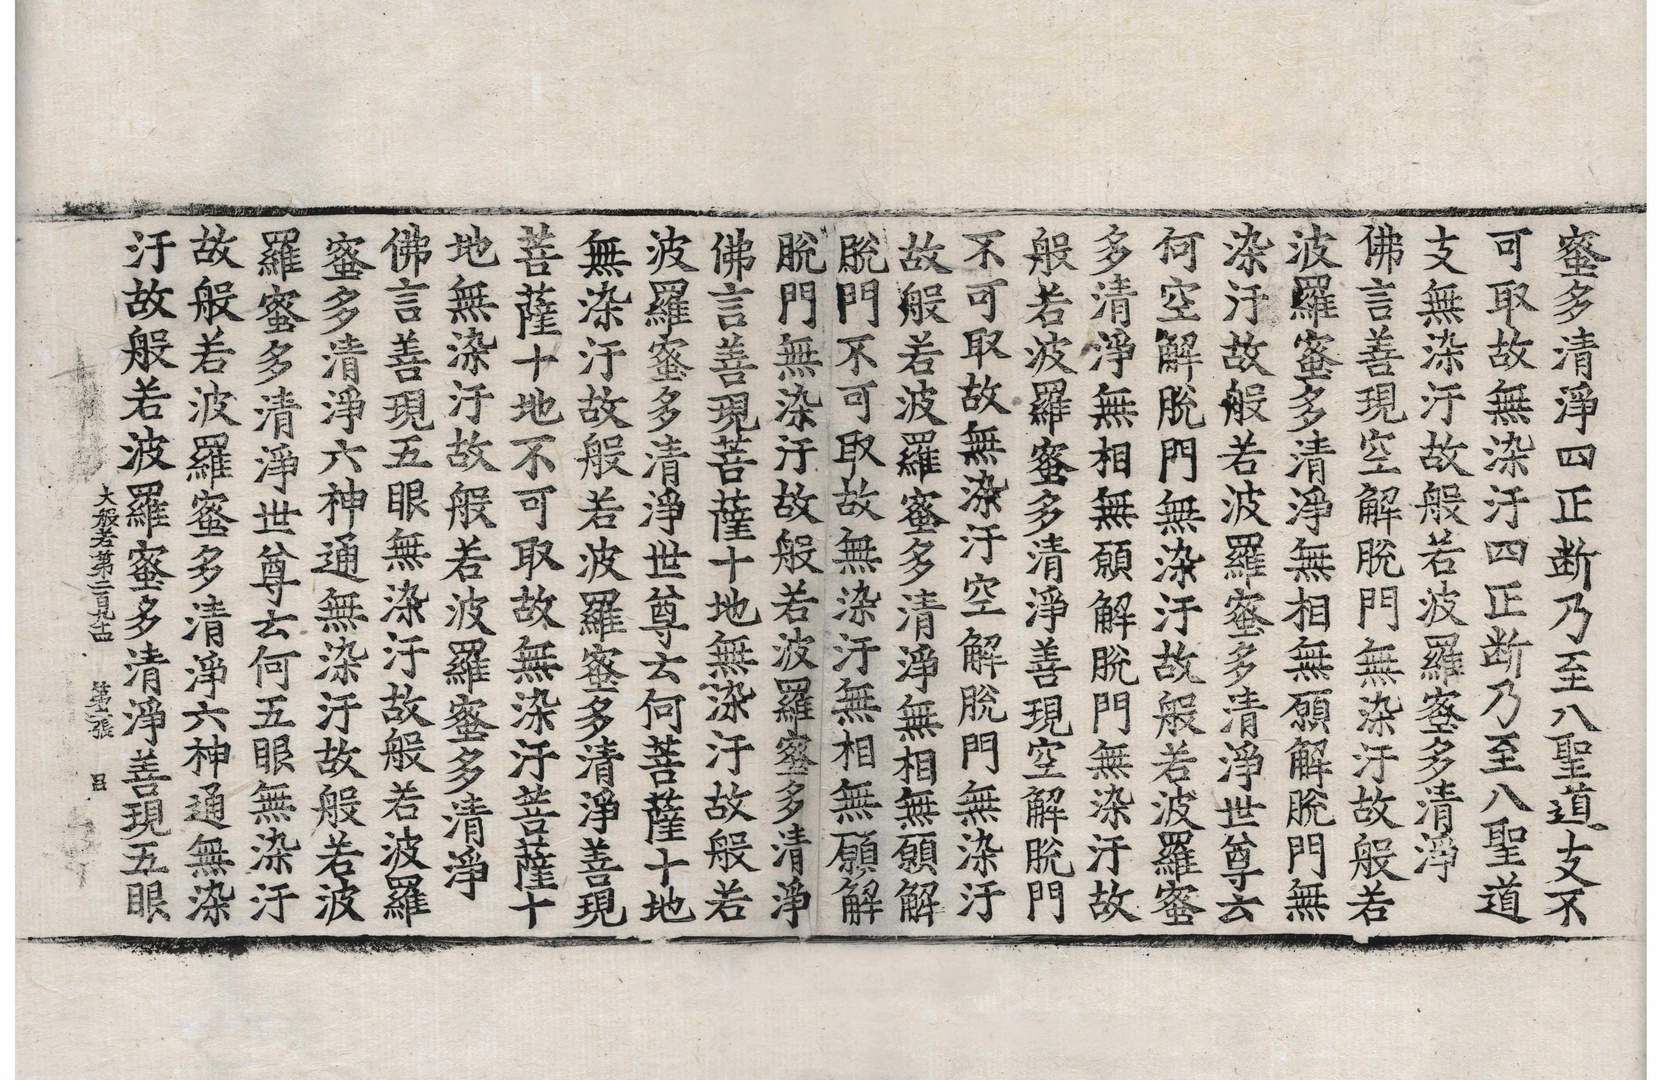 蜜多清淨四正断乃至八聖道支不
可取故無染汙四正断乃至八聖道
支無染汙故般若波羅蜜多清淨
佛言善現空解脫門無染汙故般若
波羅蜜多清淨無相無願解脫門無
染汙故般若波羅蜜多清淨世尊云
何空解脫門無染汙故般若波羅蜜
多清淨無相無願解脫門無染汙故
般若波羅蜜多清淨善現空解脫門
不可取故無染汙空解脫門無染汙
故般若波羅蜜多清淨無相無願解
脫門不可取故無染汙無相無願解
脫門無染汙故般若波羅蜜多清淨
佛言善現菩薩十地無染汙故般若
波羅蜜多清淨世尊云何菩薩十地
無染汙故般若波羅蜜多清淨善現
菩薩十地不可取故無染汙菩薩十
地無染汙故般若波羅蜜多清淨
佛言善現五眼無染汙故般若波羅
蜜多清淨六神通無染汙故般若波
羅蜜多清淨世尊云何五眼無染汙
故般若波羅蜜多清淨六神通無染
汙故般若波羅蜜多清淨善現五眼
大般若第二百九十四 第三張 呂